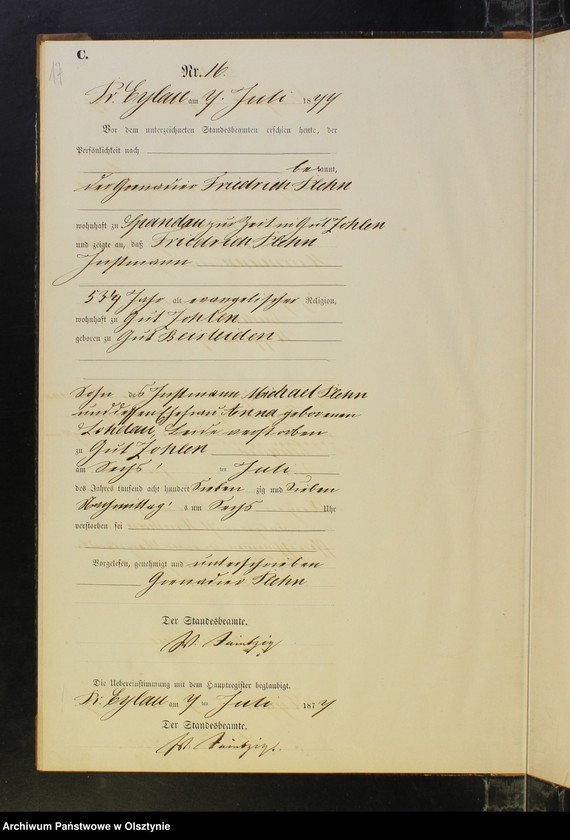 C.
17
Nr. 16.
Pr. Eylau am 7. Juli 1877
Vor dem unterzeichneten Standesbeamten erschien heute, der
Persönlichkeit nach
bekannt,
der Grenadier Friedrich Plehn
wohnhaft zu Spandau zur Zeit in Gut Zohlen
und zeigte an, daß Friedrich Plehn
Instmann
53¼ Jahr alt evangelischer Religion,
wohnhaft zu Gut Zohlen
geboren zu Gut Beisleiden
Sohn des Instmann Michael Plehn
und dessen Ehefrau Anna geborenen
beide verstorben
zu Gut Zohlen
am Sechs ten Juli
des Jahres tausend acht hundert Sieben zig und Sieben
Nachmittags um Sechs Uhr
verstorben sei
Vorgelesen, genehmigt und unterschrieben
Grenadier Plehn
Der Standesbeamte.
W.
Die Uebereinstimmung mit dem Hauptregister beglaubigt.
Pr. Eylau am 7 ten Juli 1877
Der Standesbeamte.
W.
Archiwum Państwowe w Olsztynie